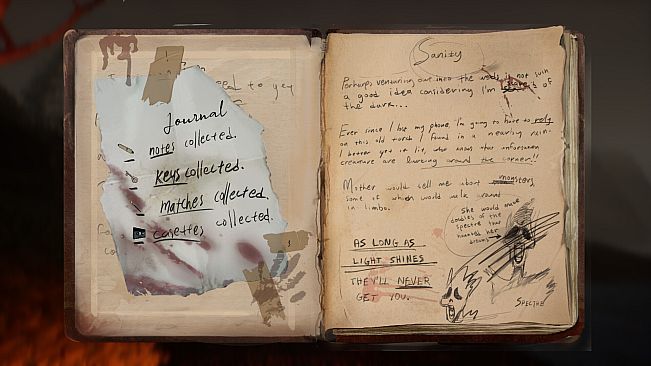 Journal
notes collected.
keys collected.
matches collected.
casettes collected.
Sanity
Perhaps venturing out into the woods is not such
a good idea considering I'm of
the dark...
Ever since I lose my phone, I'm going to have to rely
on this old torch I found in a nearby ruin.
I better get it lit, who knows what unforseen
creature are lurking around the corner!!
Mother would tell me about monsters,
some of which would walk around
in limbo.
She would make
doodles of the
spectre that
haunted her
dreams
AS LONG AS
LIGHT SHINES
THEY'LL NEVER
GET YOU.
SPECTRE